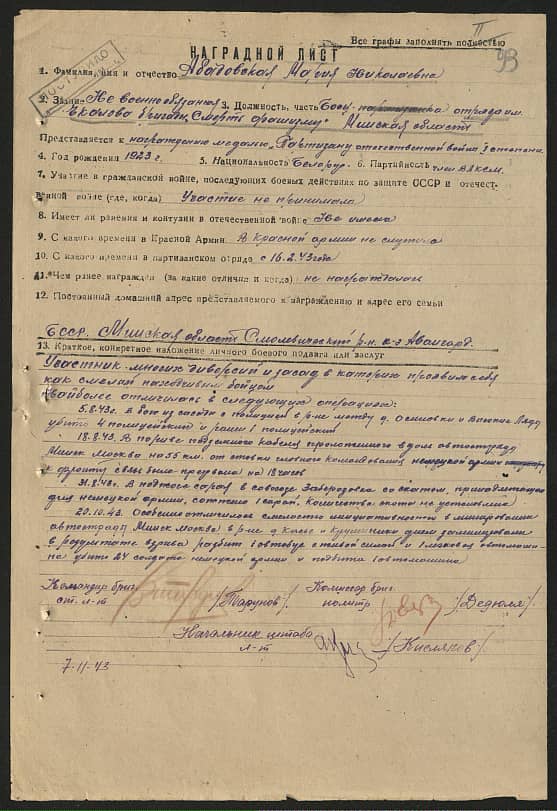 Все графы заполнять полностью
НАГРАДНОЙ ЛИСТ
93
1. Фамилия, имя и отчество Мария Николаевна
2. Звание Не военнообязаная 3. Должность, часть Боец отряда им.
Чкалова бригады "Смерть фашизму" Минской области
Представляется к награждению медалью "Партизану отечественной войны" I степени
4. Год рождения 1923 г. 5. Национальность Белорус. 6. Партийность член ВЛКСМ.
7. Участие в гражданской войне, последующих боевых действиях по защите СССР и отечест-
венной войне (где, когда) Участие не принимала
8. Имеет ли ранения и контузии в отечественной войне Не имела
9. С какого времени в Красной Армии В красной армии не служила
10. С какого времени в партизанском отряде с 16.2.43 года
11. Чем ранее награжден (за какие отличия и когда) не награждалась
12. Постоянный домашний адрес представляемого к награждению и адрес его семьи
БССР. Минская область Смолевический р-н. к-з Авангард.
13. Краткое, конкретное изложение личного боевого подвига или заслуг
Участник многих диверсий и засад в которых проявил себя
как смелый находчивый бойцом
Наиболее отличилась в следующих операциях:
5.8.43 г. В бою из засады с полицией в р-не между д. Осиновки и
убито 4 полицейских и ранен 1 полицейский
18.8.43. В порыве подземного кабеля проложенного вдоль автострады
Минск Москва на 55 км. от ставки главного командования немецкой армии
к фронту связь была прервана на 18 часов
31.8.43 г. В поджоге сарая в совхозе Забородье со скотом, принадлежащим
для немецкой армии, сожжено 1 сарай. Количество скота не установлено
20.10.43. Особенно отличилась смелостью инициативностью в минировании
автострады Минск Москва в р-не д. и днем заминировали
в результате взрыва разбит 1 автобус с живой силой и 1 легковая автомаши-
на убито 24 солдата немецкой армии и подбита 1 автомашина
Командир бриг. Комиссар бриг.
ст. л-т /Тарунов/ политр. /Дедюля/
Начальник штаба
л-т /Кисляков/
7.11.43